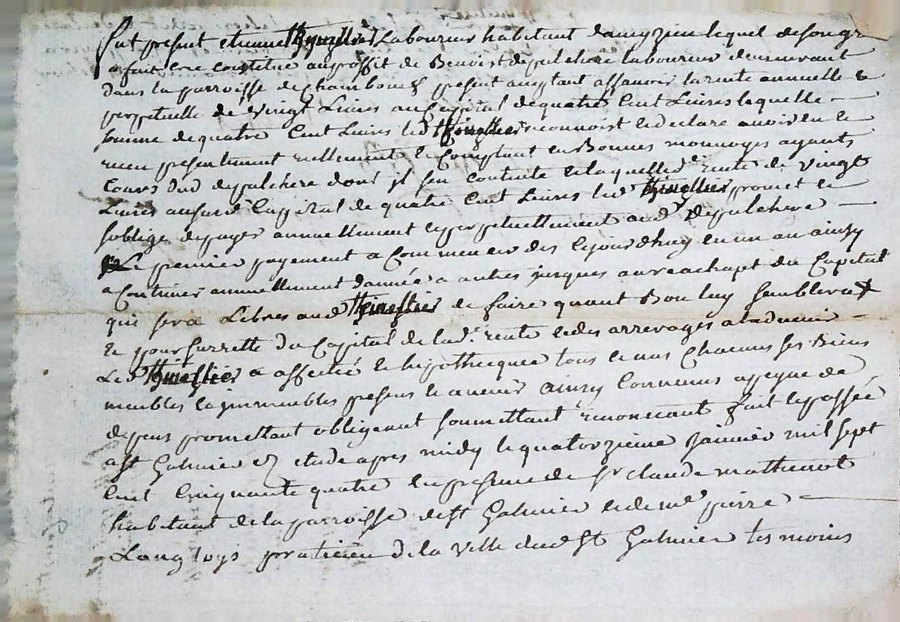 fut présent etienne Thinellier Laboureur habitant d lequel de son gré
a fait et constitué au proffit de Benoist depulchere laboureur demeurant
dans la parroisse de chambeuf présent acceptant assavoir la rente annuelle &
perpetuelle de vingt Livres au capital de quatre Cent Livres laquelle
somme de quatre Cent Livres led Thinellier reconnoist et declare avoir eu et
receu présentement reellement et comptant en Bonnes monnoyes ayants
Cours dud depulchere dont il sen contente et laquelle de rente de vingt
Livres aususd Cappital de quatre cent Livres led Thinellier promet et
soblige de payer annuellement et perpetuellement aud Sr depulchere
Le premier payement a Commencer des cejourdhuy en un an ainsy
a Continuer annuellement dannée a autres jusques au reachapt du Capital
qui sera Libres aud Thinellier de faire quant Bon luy semblera &
et pour surretté du Capital de lad. rente et des arrerages aladvenir
Led Thinellier a affecté et hipothecque tous et uns Chacuns ses Biens
meubles et immeubles présens et avenir ainsy Convenus a peyne de
depens promettant obligeant soumettant renoncant fait et passée
a st Galmier ez etude apres midy le quatorzieme janvier mil sept
Cent Cinquante quatre en presence de sr claude mathevot
habitant de la parroisse de st Galmier et de me pierre
Langloys praticien de la ville dud st Galmier tesmoins